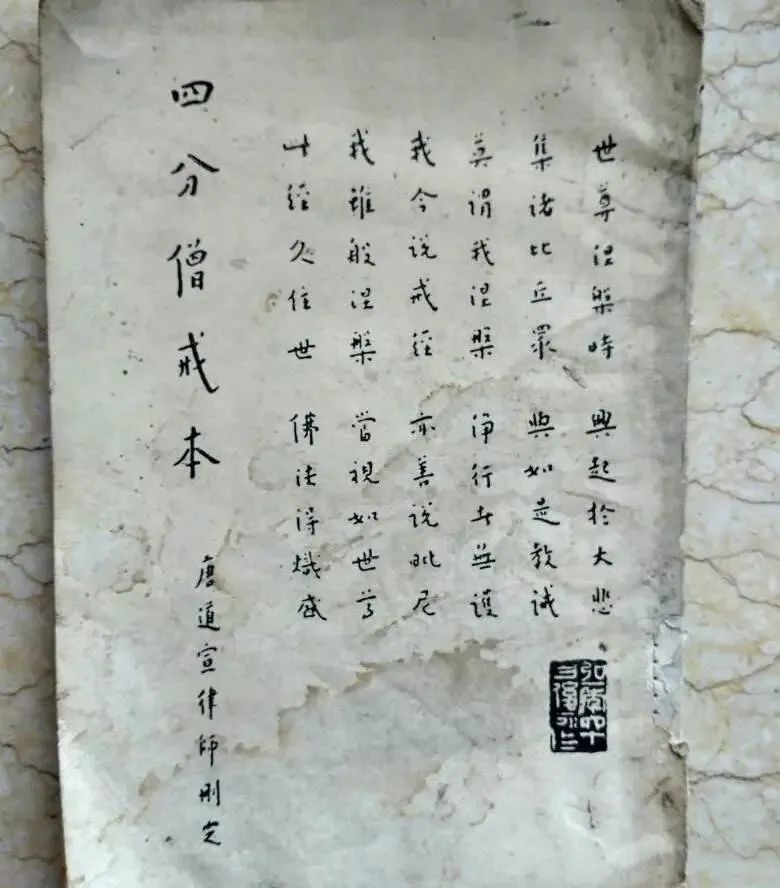 世尊涅槃時 興起於大悲
集諸比丘眾 與如是教誡
莫謂我涅槃 淨行者無護
我今說戒經 亦善說毗尼
我雖般涅槃 當視如世尊
此經久住世 佛法得熾盛
四分僧戒本
唐道宣律師刪定